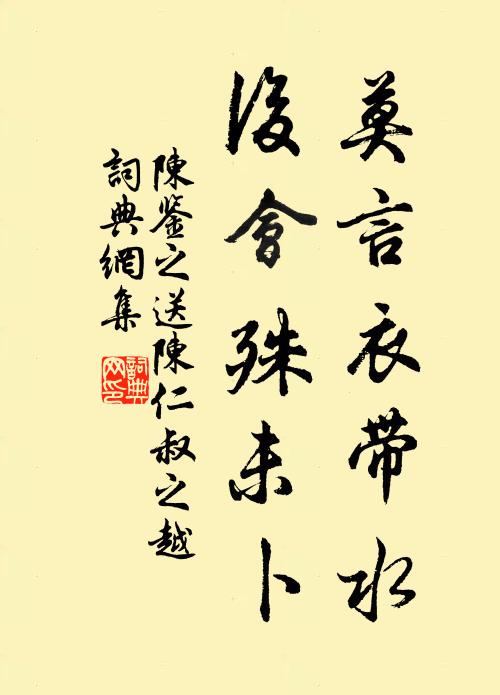 莫言衣带水
後會殊未卜
陳鉴之送陳仁叔之越
詞典網集
詞典
网印